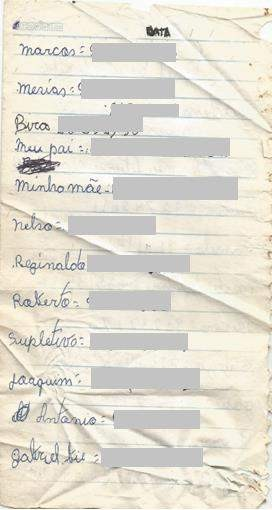 DATA
marcos =
Messias =
Bira
Meu pai =
Minha mãe -
nelso =
Reginaldo
Roberto =
Supletivo =
Joaquim =
Antonio =
gabriel